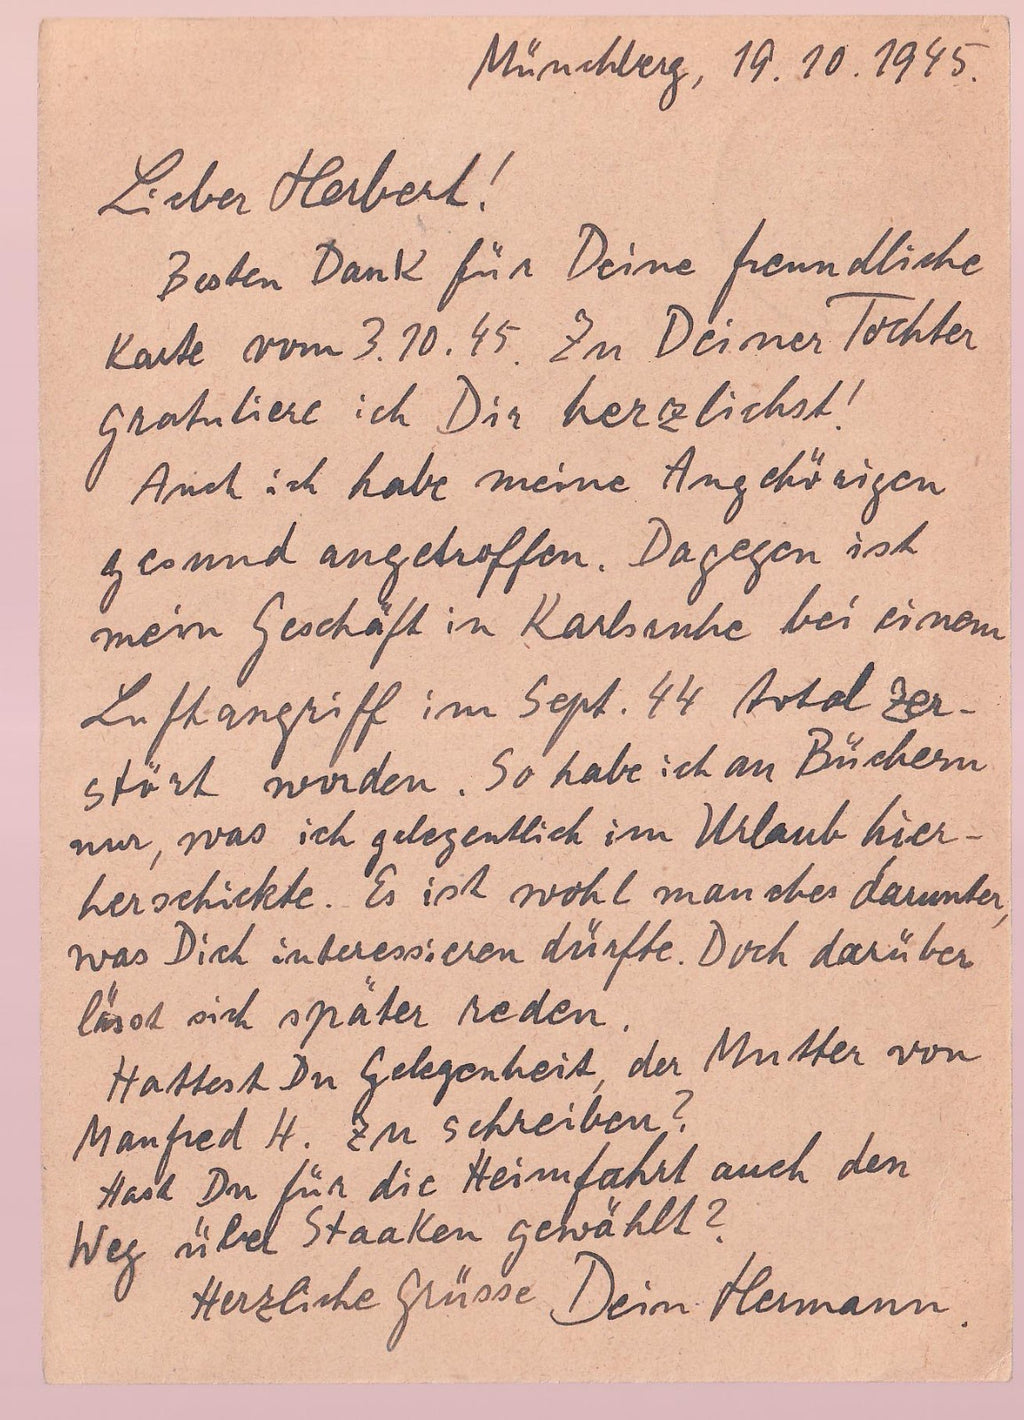 Münchberg, 19.10.1945.
Lieber Herbert!
Besten Dank für Deine freundliche
Karte vom 3.10.45. Zu Deiner Tochter
gratuliere ich Dir herzlichst!
Auch ich habe meine Angehörigen
gesund angetroffen. Dagegen ist
mein Geschäft in Karlsruhe bei einem
Luftangriff im Sept. 44 total zer-
stört worden. So habe ich an Büchern
nur, was ich gelegentlich im Urlaub hier-
herschickte. Es ist wohl manches darunter,
was Dich interessieren dürfte. Doch darüber
lässt sich später reden.
Hattest Du Gelegenheit, der Mutter von
Manfred H. zu schreiben?
Hast Du für die Heimfahrt auch den
Weg über Staaken gewählt?
Herzliche Grüsse Dein Hermann.